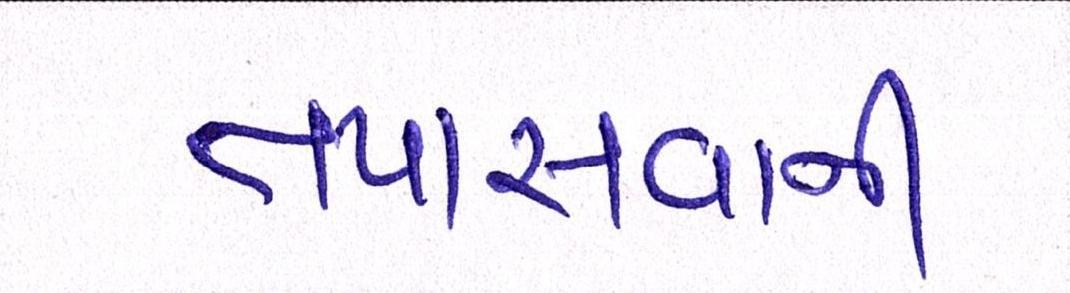 તપાસવાની